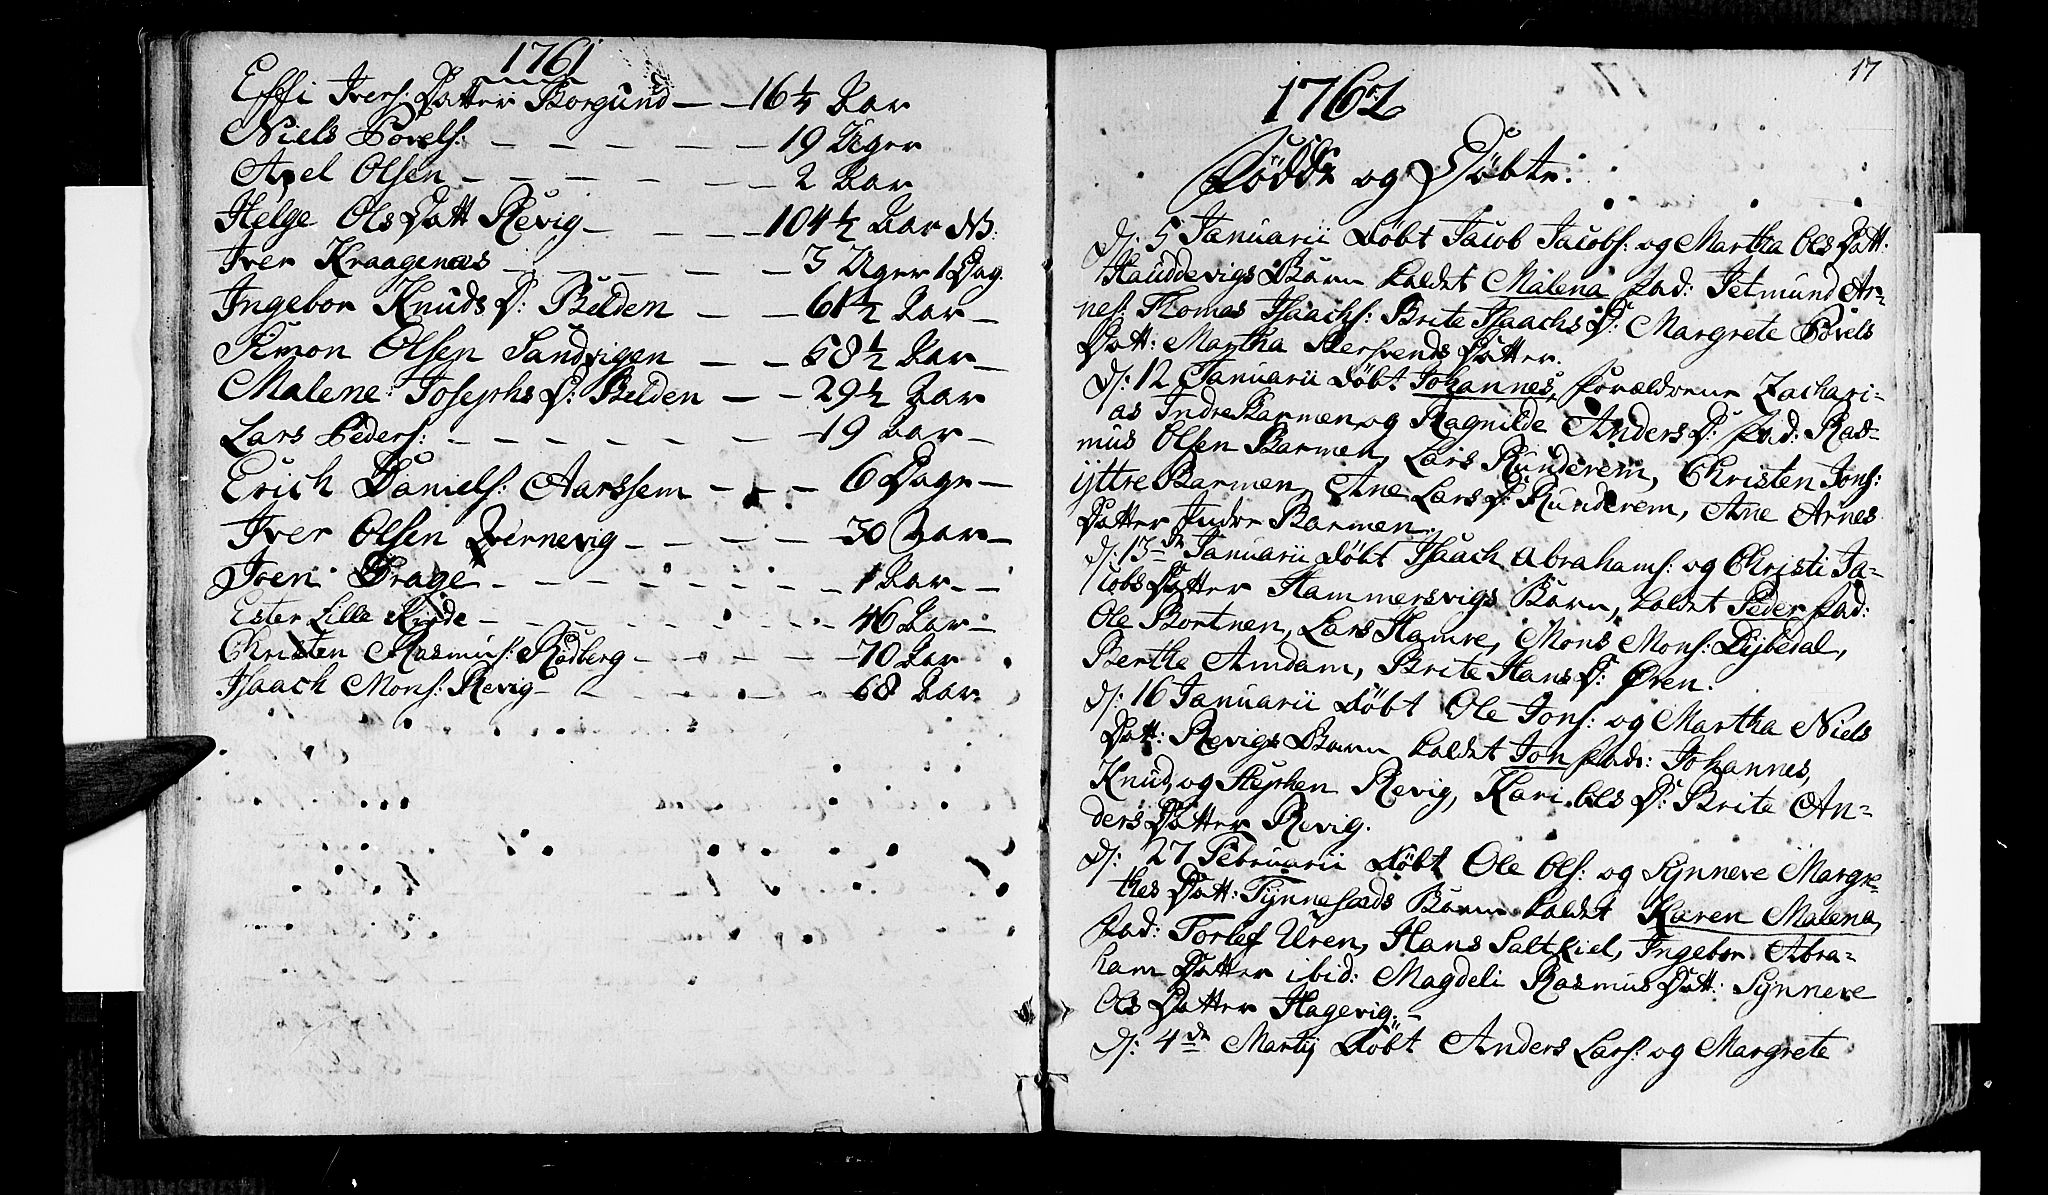 1761
Effi Ivers: Datter Borgund — — 16 1/4 Aar
Niels Povels: — — — — — 19 Uger
Axel Olsen — — — — — — 2 Aar
Helge Ols Datt Revig — — — 104 1/2 Aar NB:
Iver Kraagenæs — — — — — 3 Uger 1 Dag.
Ingebor Knuds D: Belden — — 61 1/2 Aar —
Simon Olsen Sandvigen — — 58 1/2 Aar —
Malene: Josephs D: Belden — — 29 1/2 Aar
Lars Peders: — — — — — — 19 Aar —
Erich Daniels: Aarssem — — — 6 Dage —
Iver Olsen Qvernevig — — — — 30 Aar —
Iver Drage — — — — — — 1 Aar — —
Ester Lille Riise — — — — — 46 Aar —
Christen Rasmus: Rødberg — — — — 70 Aar
Isaach Mons: Revig — — — — — 68 Aar
17
1762
Födde og Döbte:
D: 5 Januarii Döbt Jacob Jacobs: og Martha Ols Datt:
Hauddevigs Barn kaldet Malena Fad: Jetmund Ar=
nes: Thomes Isaachs: Brite Isaachs D: Margrete Povels
Datt: Martha Hersvends Datter.
D: 12 Januarii Döbt Johannes, Forældrene Zachari=
as Indre Barmen og Ragnilde Anders D: Fad: Ras=
mus Olsen Barmen, Lars Runderem, Christen Jons:
ijttre Barmen, Ane Lars D: Runderem, Ane Arnes
Datter Indre Barmen.
D: 13de Januarii Döbt Isaach Abrahams: og Christi Ja=
cobs Datter Hammersvigs Barn, kaldet Peder Fad:
Ole Bortnen, Lars Hamre, Mons Mons: Dijbedal,
Berthe Amdam, Brite Hans D: Øren.
D: 16 Januarii Döbt Ole Jons: og Martha Niels
Datt: Revigs Barn kaldet Jon Fadr: Johannes,
Knud, og Stephen Revig, Kari Ols D: Brite An=
ders Datter Revig.
D: 27 Februarii Döbt Ole Ols: og Synneve Margre=
thes Datt: Tynnesæds Barn kaldet Karen Malena,
Fad: Torlef Uren, Hans Saltkiel, Ingebor Abra=
ham Datter ibid: Magdeli Rasmus Datt: Synneve
Ols Datter Hagevig. —
D: 4de Martij Döbt Anders Lars: og Margrete